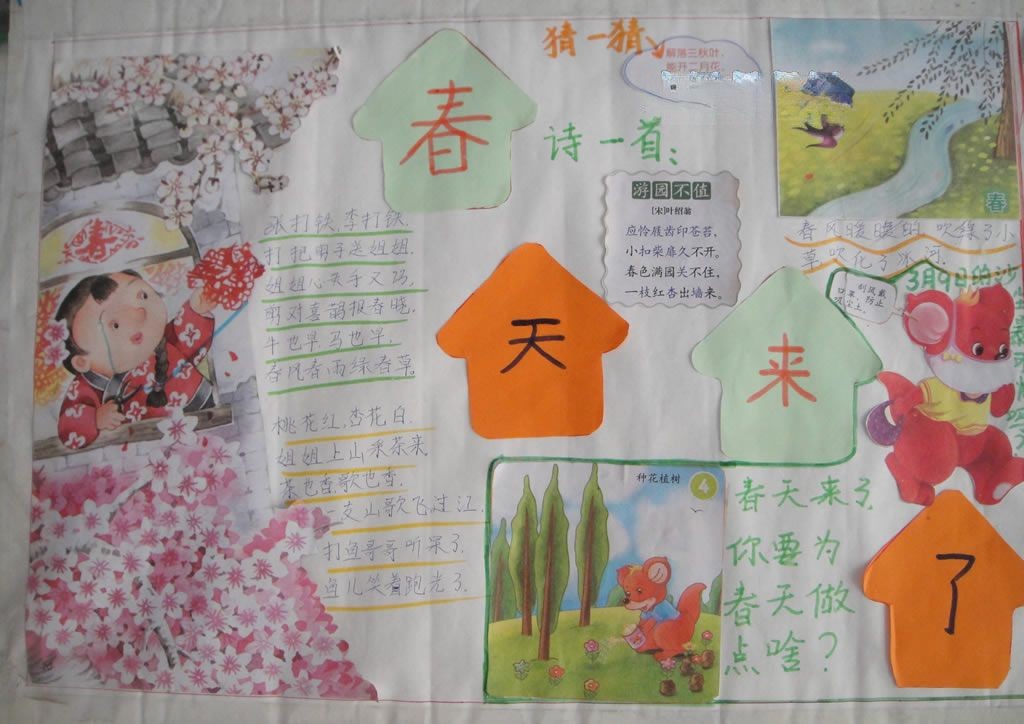 春
天
来
了
猜一猜
解落三秋叶，
能开二月花，
诗一首：
游园不值
[宋]叶绍翁
应怜屐齿印苍苔，
小扣柴扉久不开。
春色满园关不住，
一枝红杏出墙来。
春
春风暖暖的 吹绿了小
草吹化了冰河.
3月9日的沙
刮风戴
口罩，防止
吸尘土.
春
张打铁,李打铁.
打把剪子送姐姐.
姐姐心灵手又巧,
剪对喜鹊报春晓,
牛也早,马也早.
春风春雨绿春草.
桃花红,杏花白.
姐姐上山采茶来
茶也香,歌也香.
一支山歌飞过江.
打鱼哥哥听呆了.
鱼儿笑着跑光了.
种花植树
4
春天来了.
你要为
春天做
点啥？